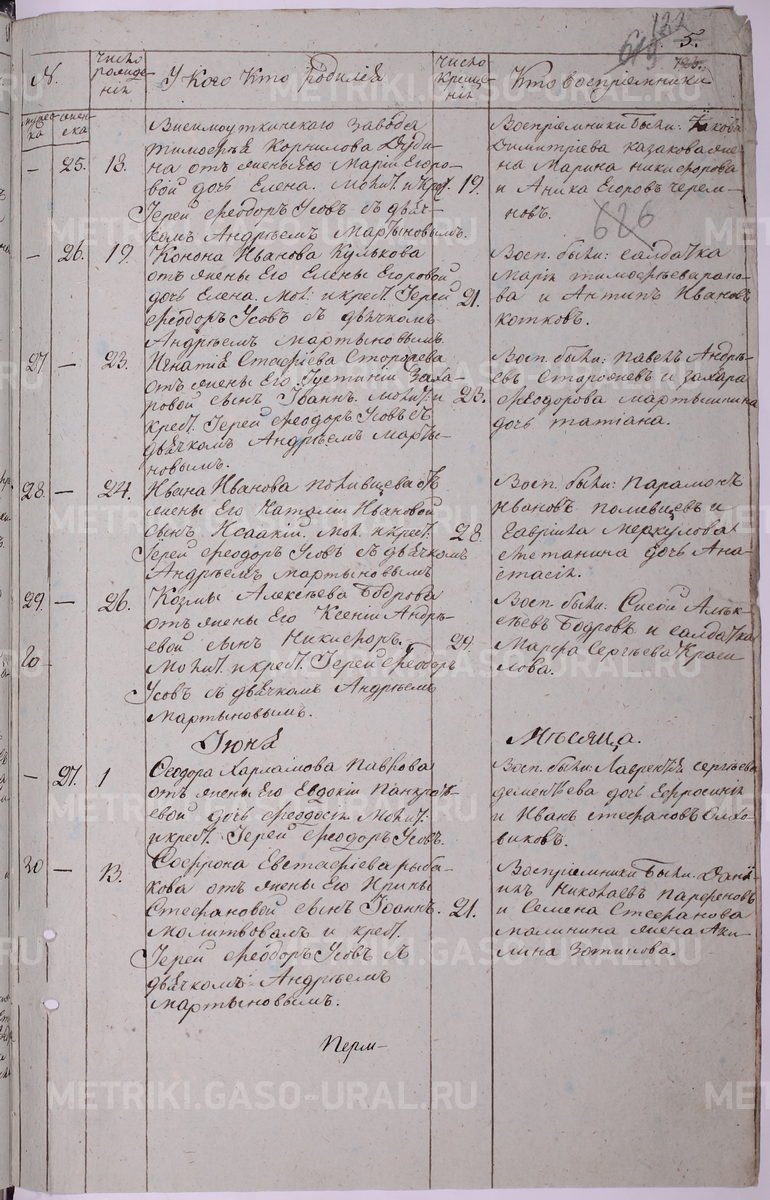 122
619 5.
N.
Число рожде-нія
У Кого Кто родился
Число креще-нія
Кто воспріемники
мужес-ка
женс-ка
— 25. 18.
Висимоуткинскаго завода
Тимофѣя Корнилова Дуби-
на отъ жены Его Маріи Егоро-
вой дочь Елена. Молит. и Крест.
Іерей Ѳеодоръ Усовъ съ дьяч-
комъ Андрѣемъ Мартыновымъ.
19.
Воспріемники были: Іакова
Димитріева Казакова жена
Марина Никифорова
и Аника Егоровъ Черем-
новъ.
626
— 26. 19.
Конона Иванова Кулькова
отъ жены Его Елены Егоровой
дочь Елена. Мол: и крест. Іерей
Ѳеодоръ Усовъ съ дьячкомъ
Андрѣемъ Мартыновымъ.
21.
Восп. были: салдатка
Марія Тимофѣева
и Антипъ Ивановъ
Котковъ.
27 — 23.
Игнатія Стафіева
отъ жены Его Іустиніи Заха-
ровой сынъ Іоаннъ. Молит. и
крест. Іерей Ѳеодоръ Усовъ съ
дьячкомъ Андрѣемъ Марты-
новымъ.
23.
Восп. были: Павелъ Андрѣ-
евъ и Захара
Ѳеодорова Мартышкина
дочь Татіана.
28. — 24.
Ивана Иванова отъ
жены Его Наталіи Ивановой
сынъ Исаакій. Мол. и крест.
Іерей Ѳеодоръ Усовъ съ дьячкомъ
Андрѣемъ Мартыновымъ
28.
Восп. были: Парамонъ
Ивановъ и
Гаврила Меркулова
дочь Ана-
стасія.
29. — 26.
Козмы Алексѣева Бодрова
отъ жены Его Ксеніи Андрѣ-
евой сынъ Никифоръ.
Молит. и крест. Іерей Ѳеодоръ
Усовъ съ дьячкомъ Андрѣемъ
Мартыновымъ.
29.
Восп. были: Алек-
сѣевъ Бодровъ и салдатка
Марфа Сергѣева Краси-
лова.
Іюня Мѣсяца.
— 27. 1
Ѳеодора Харлампова Павлова
отъ жены Его Евдокіи Панкрать-
евой дочь Ѳеодосія. Молит.
и крест. Іерей Ѳеодоръ Усовъ.
Восп. были: Лаврентія Сергѣева
Дементьева дочь Ефросинія
и Иванъ Стефановъ
30 — 13.
Софрона Евстафіева Рыба-
кова отъ жены Его Ирины
Стефановой сынъ Іоаннъ.
Молитвовалъ и крест.
Іерей Ѳеодоръ Усовъ съ
дьячкомъ Андрѣемъ
Мартыновымъ.
21.
Воспріемники были: Дані-
илъ Николаевъ Парфеновъ
и Семена Стефанова
Малинина жена Аку-
лина Зотикова.
Перм-
METRIKI.GASO-URAL.RU